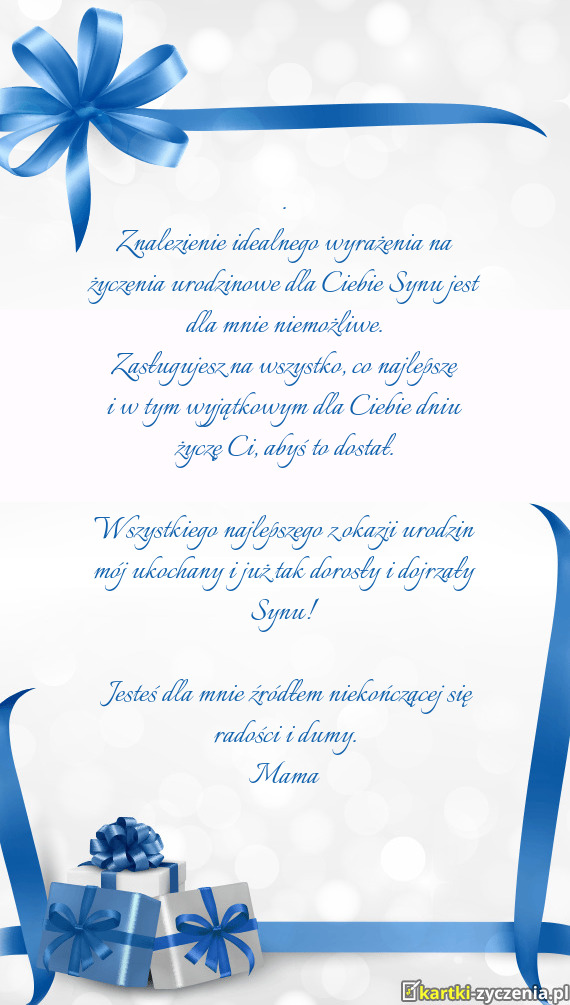 .
Znalezienie idealnego wyrażenia na
życzenia urodzinowe dla Ciebie Synu jest
dla mnie niemożliwe.
Zasługujesz na wszystko, co najlepsze
i w tym wyjątkowym dla Ciebie dniu
życzę Ci, abyś to dostał.
Wszystkiego najlepszego z okazji urodzin
mój ukochany i już tak dorosły i dojrzały
Synu!
Jesteś dla mnie źródłem niekończącej się
radości i dumy.
Mama
kartki-zyczenia.pl